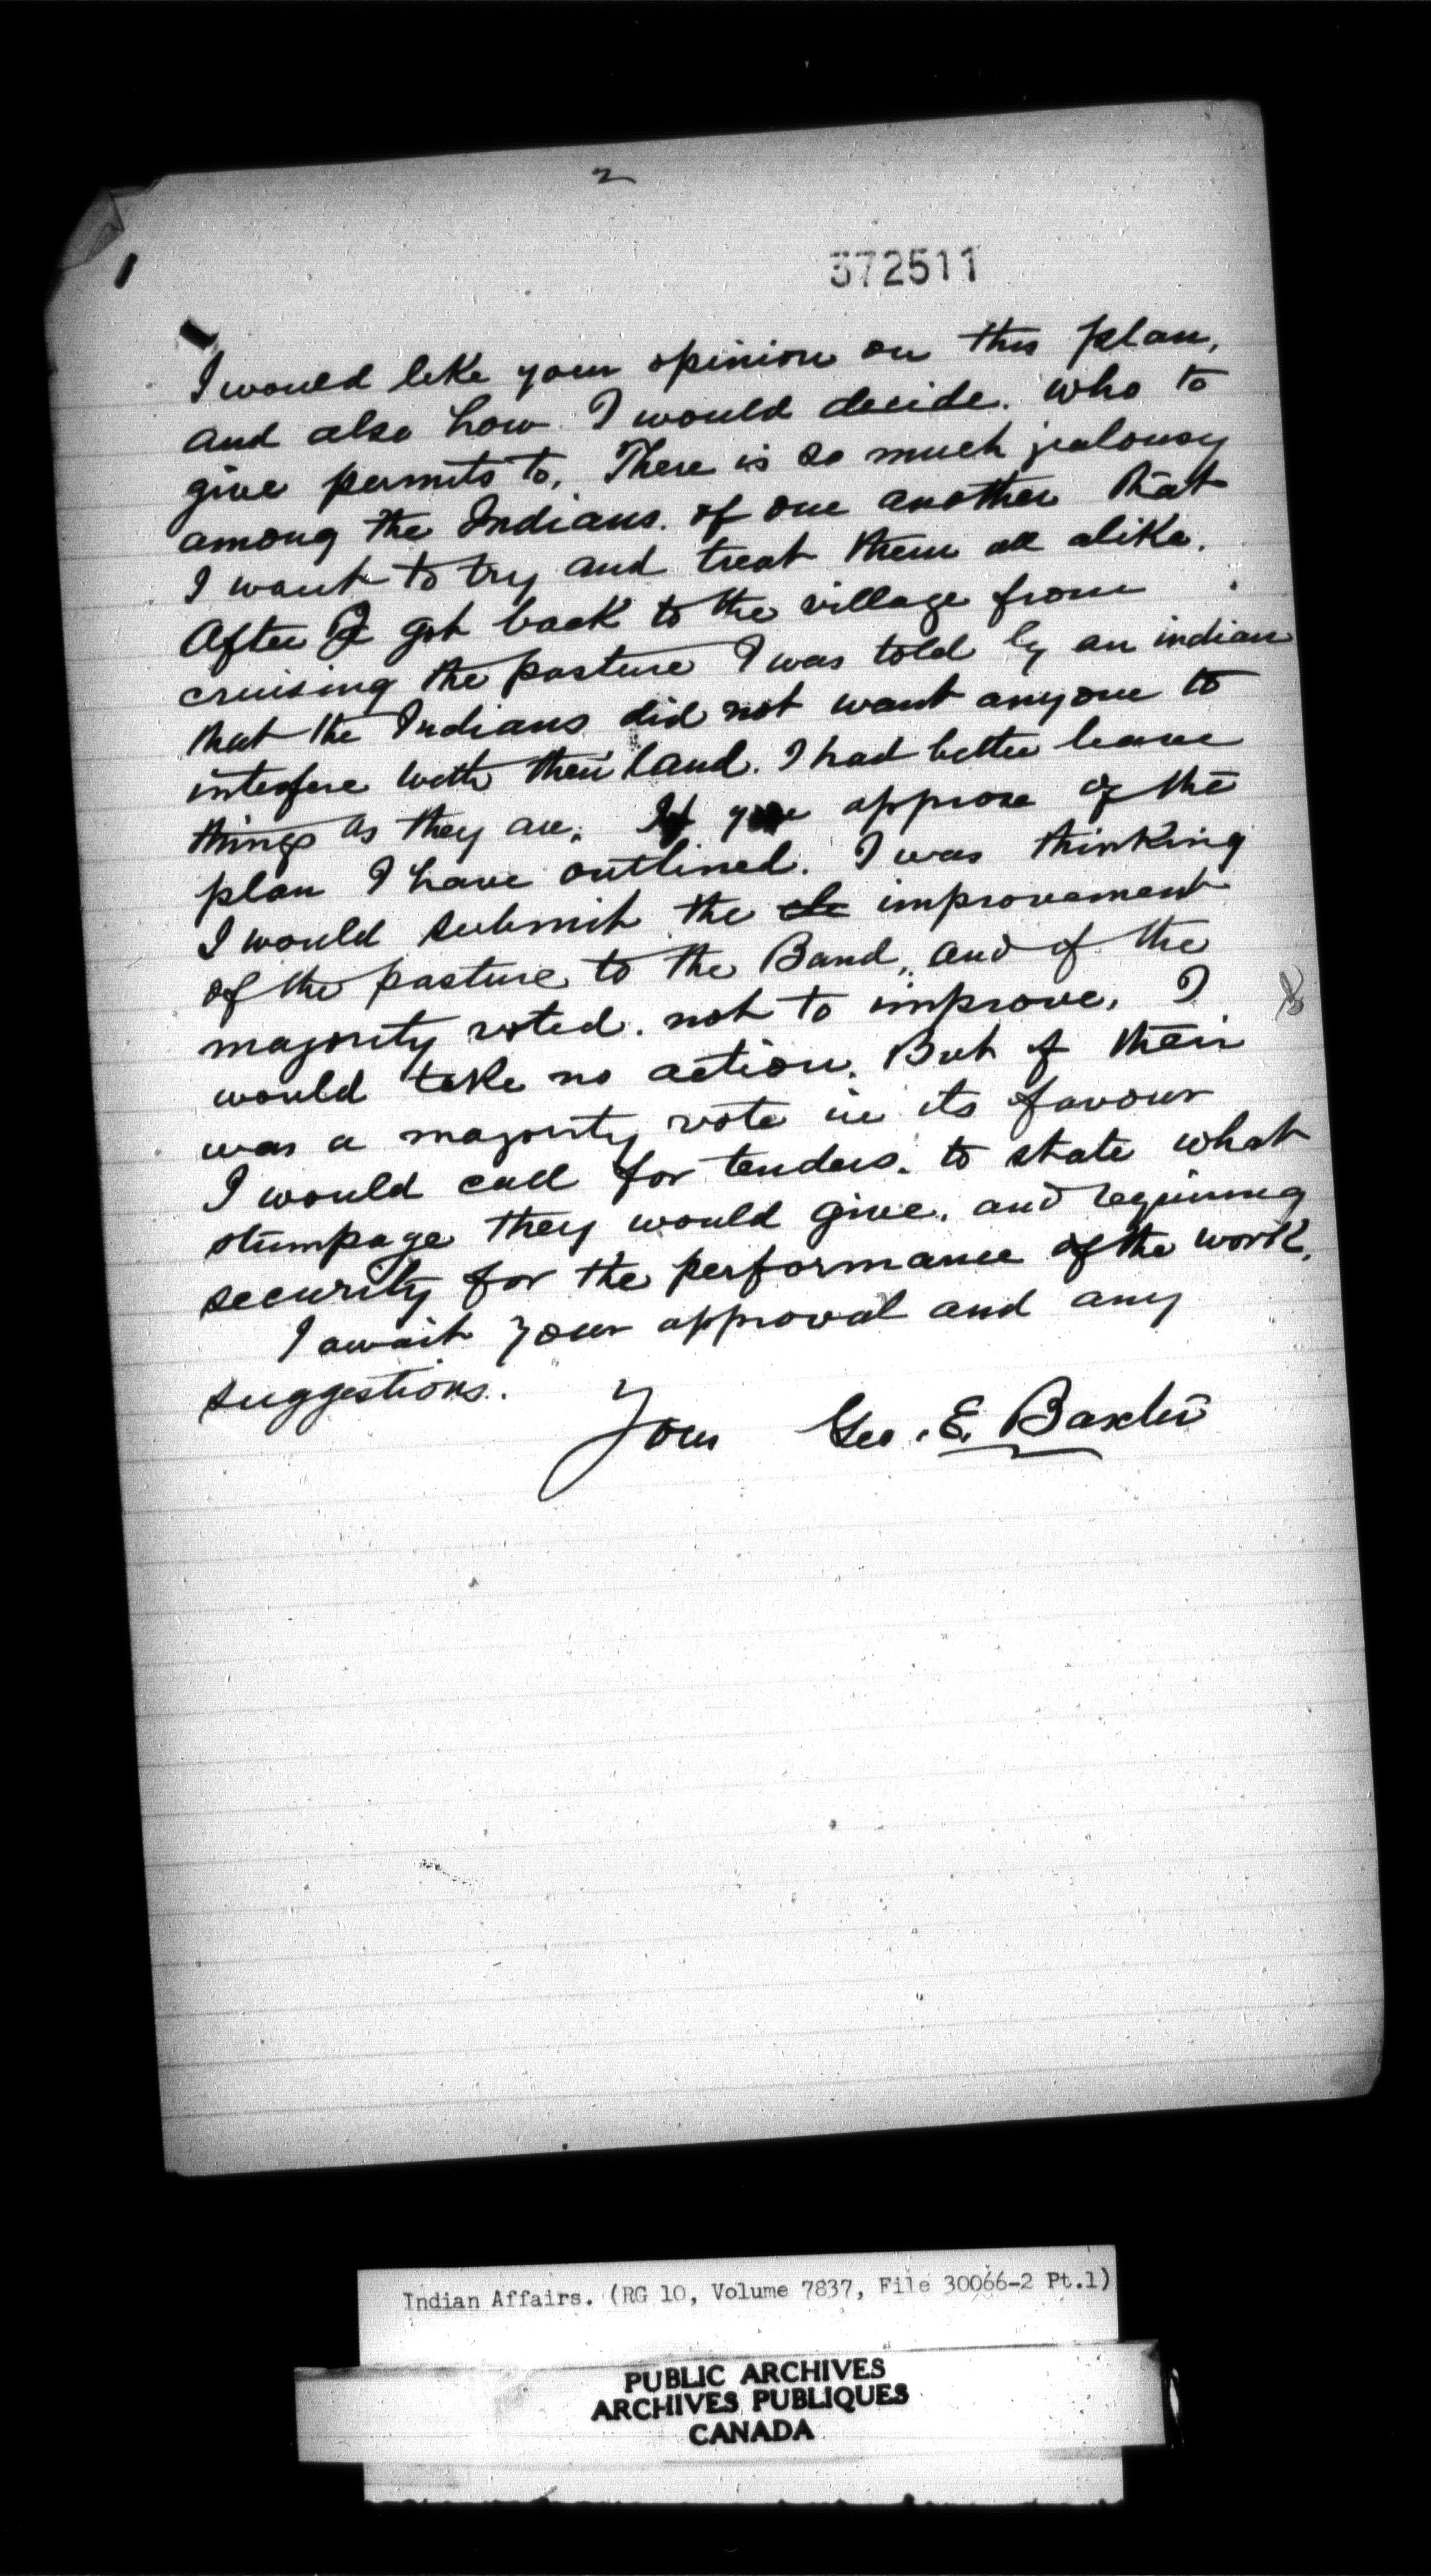 2
372511
I would like your opinion on this plan,
and also how I would decide. who to
give permits to. There is so much jealousy
among the Indians. of one another that
I want to try and treat them all alike.
After I got back to the village from
cruising the pasture I was told by an indian
that the Indians did not want anyone to
interfere with their land. I had better leave
things as they are. If you approve of the
plan I have outlined. I was thinking
I would submit the improvement
of the pasture to the Band, and if the
majority voted. not to improve, I
would take no action. But if their
was a majority vote in its favour
I would call for tenders. to state what
stumpage they would give. and requiring
security for the performance of the work.
I await your approval and any
suggestions.
Yours Geo. E. Baxter
Indian Affairs. (RG 10, Volume 7837, File 30066-2 Pt.1)
PUBLIC ARCHIVES
ARCHIVES PUBLIQUES
CANADA